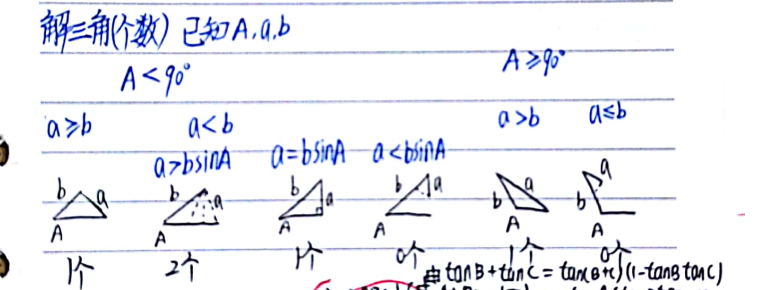 解三角(个数) 已知A,a,b
A<90° A≥90°
a≥b a<b a>b a≤b
a>bsinA a=bsinA a<bsinA
b a b a b a b a b a b a
A A A A A A
1个 2个 1个 0个 1个 0个
由tanB+tanC=tan(B+C)(1-tanBtanC)